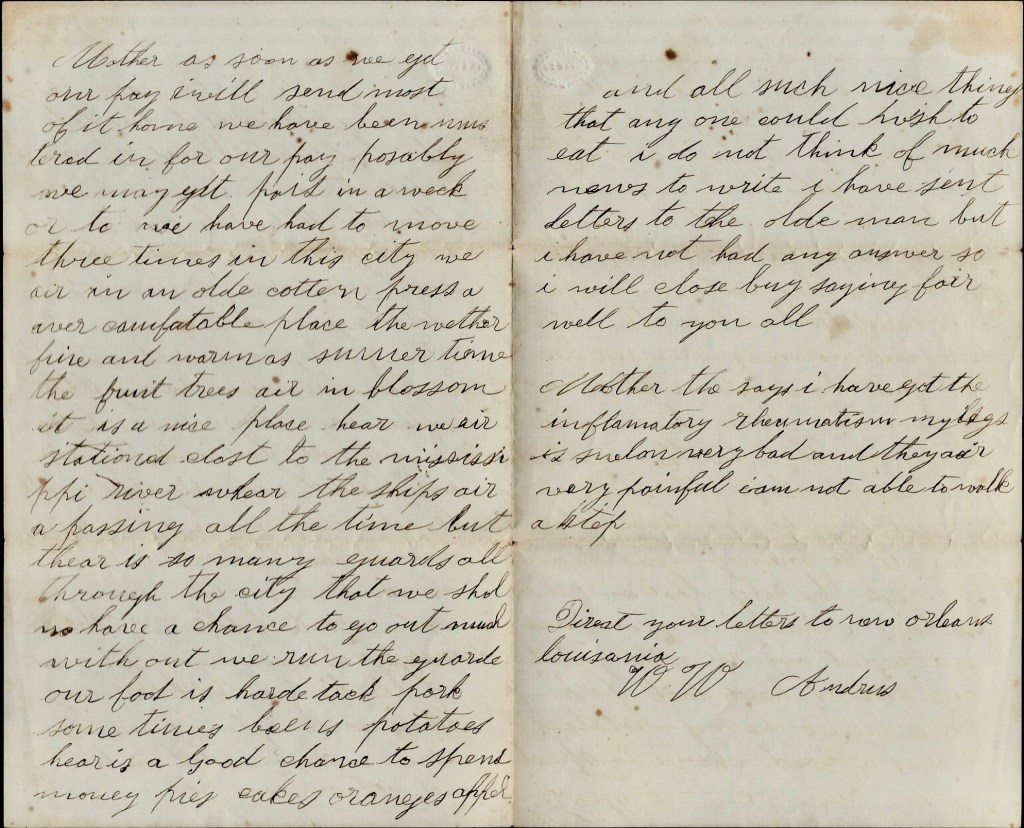 Mother as soon as we get
our pay i will send most
of it home we have been mus
tered in for our pay posably
we may gett paid in a week
or to we have had to move
three times in this city we
air in an olde cotten press a
ver comfatable place the wether
fine and warm as sumer time
the fruit trees air in blossom
it is a nice place hear we air
stationed clost to the mississi
ppi river whear the ships air
a passing all the time but
thear is so many guards all
through the city that we shol
no have a chance to go out much
with out we run the guarde
our food is harde tack pork
some times beens potatoes
hear is a good chance to spend
money pies cakes oranges appel
and all such nice things
that any one could wish to
eat i do not think of much
news to write i have sent
letters to the olde man but
i have not had any answer so
i will close buy saying fair
well to you all
Mother tho says i have got the
inflamatory rheumatism my legs
is swelon very bad and they air
very painful i am not able to walk
a step
Direct your letters to new orleans
louisania
W W Andrus